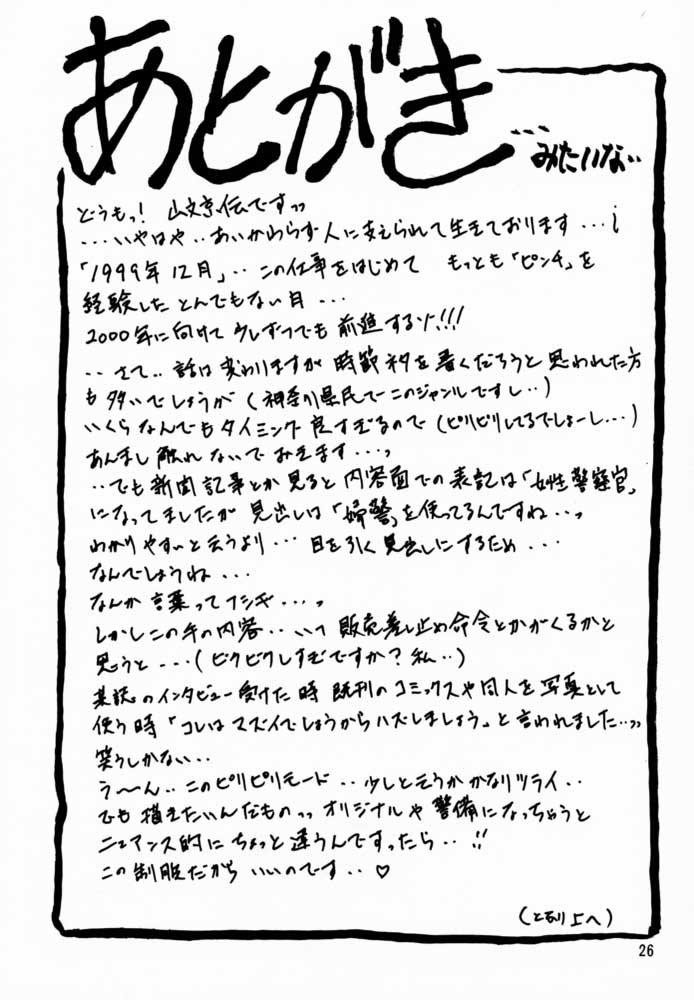 あとがき
…みたいな…
どうもっ! 山文京伝ですっっ
…いやはや‥あいかわらず人に支えられて生きております…!
「1999年12月」‥この仕事をはじめて もっとも「ピンチ」を
経験したとんでもない月…
2000年に向けて少しずつでも前進するゾ!!!
‥さて‥話は変わりますが時節ネタを書くだろうと思われた方
も多いでしょうが(神奈川県民でこのジャンルですし‥)
いくらなんでもタイミング良すぎるので(ピリピリしてるでしょーし…)
あんまし触れないでおきます…っ
‥でも新聞記事とか見ると内容面での表記は「女性警察官」
になってましたが見出しは「婦警」を使ってるんですね…っ
わかりやすいと云うより…目を引く見出しにするため…
なんでしょうね…
なんか言葉ってフシギ…っ
しかしこの手の内容‥いつ販売差し止め命令とかがくるかと
思うと…(ビクビクしすぎですか?私‥)
某誌のインタビュー受けた時既刊のコミックスや同人を写真として
使う時「コレはマズイでしょうからハズしましょう」と言われました…っっ
笑うしかない‥
う〜ん‥このピリピリモード‥少しと云うかかなりツライ‥
でも描きたいんだものっっオリジナルや警備になっちゃうと
ニュアンス的にちょっと違うんですったら‥!!
この制服だからいいのです‥♡
(となり上へ)
26